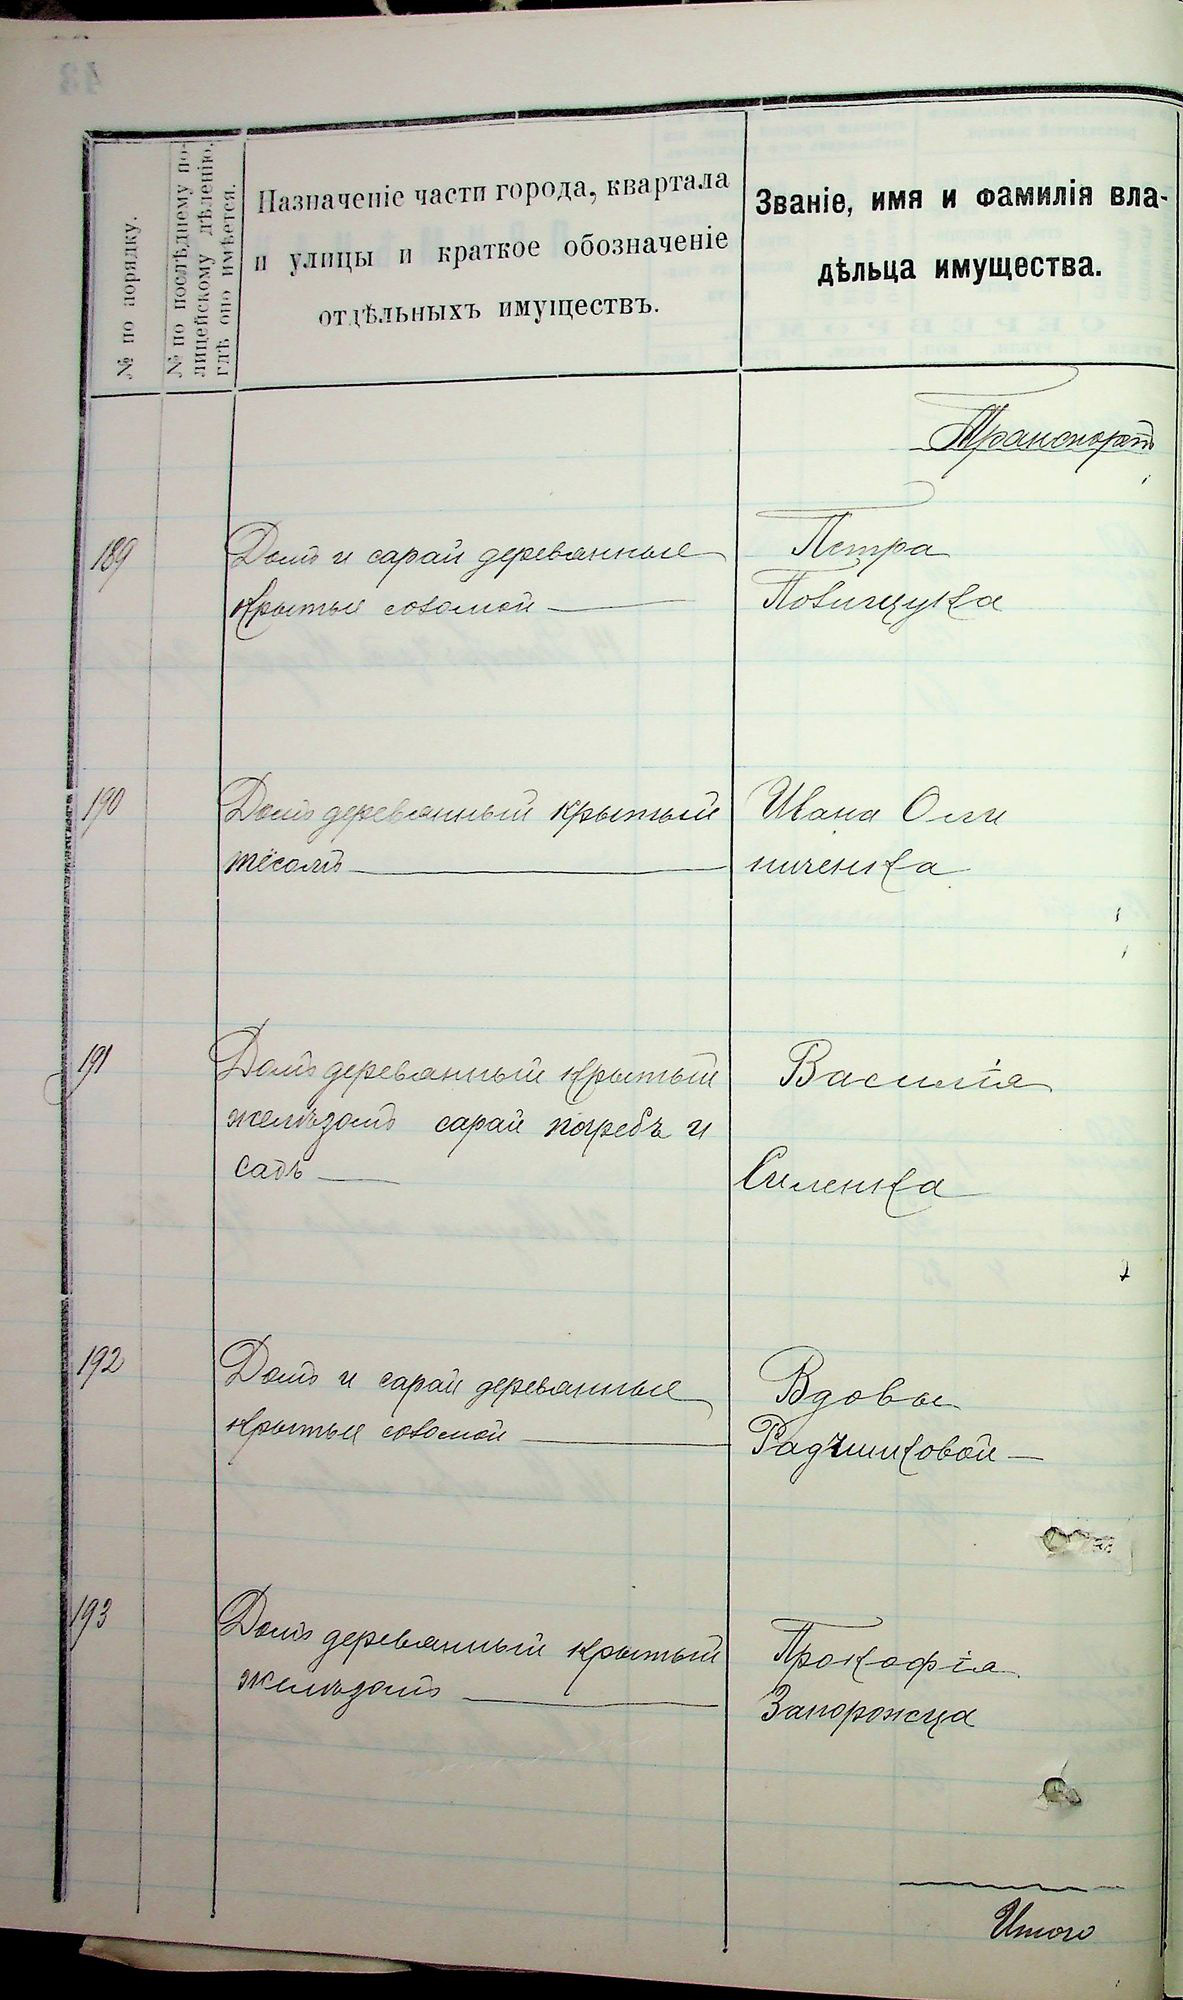 № по порядку.
№ по послѣднему по-
лицейскому дѣленію,
гдѣ оно имѣется.
Назначеніе части города, квартала
и улицы и краткое обозначеніе
отдѣльныхъ имуществъ.
Званіе, имя и фамилія вла-
дѣльца имущества.
Транспортъ
189
Домъ и сарай деревянные
крытые соломой
Петра
Повищука
190
Домъ деревянный крытый
тёсомъ
Ивана Оли
ниченка
191
Домъ деревянный крытый
желѣзомъ сарай погребъ и
садъ
Василія
Силенка
192
Домъ и сарай деревянные
крытые соломой
Вдовы
Радчиковой
193
Домъ деревянный крытый
желѣзомъ
Прокофія
Запорожца
Итого